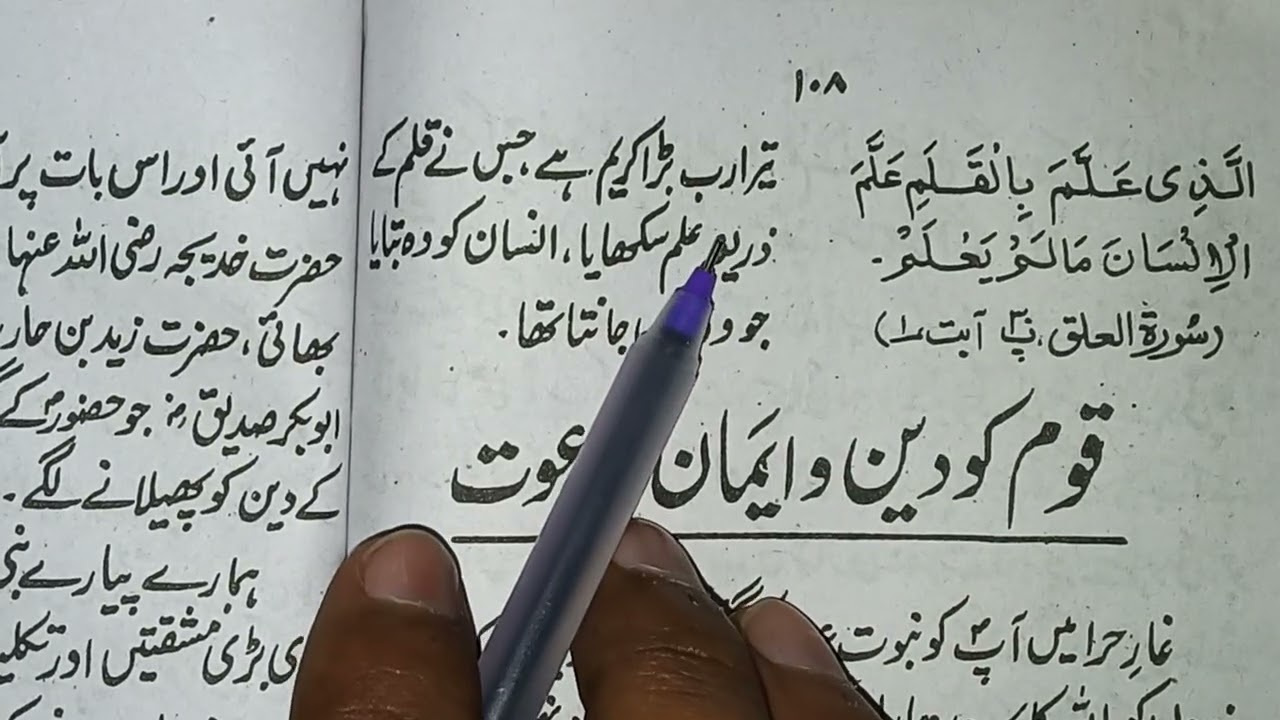 ۱۰۸
الَّذِی عَلَّمَ بِالْقَلَمِ عَلَّمَ
الْاِنْسَانَ مَا لَمْ یَعْلَمْ۔
(سُورۃ العلق، پ۳۰ آیت ۱)
تیرا رب بڑا کریم ہے، جس نے قلم کے
ذریعہ علم سکھایا، انسان کو وہ بتایا
جو جانتا تھا۔
قوم کو دین و ایمان دعوت
غارِ حرا میں آپؐ کو نبوت
نہیں آئی اور اس بات پر
حضرت خدیجہ رضی اللہ عنہا
بھائی، حضرت زید بن حار
ابوبکر صدیق رضؓ جو حضورؐ کے
کے دین کو پھیلانے لگے۔
ہمارے پیارے نبی
بڑی مشقتیں اور تکلی